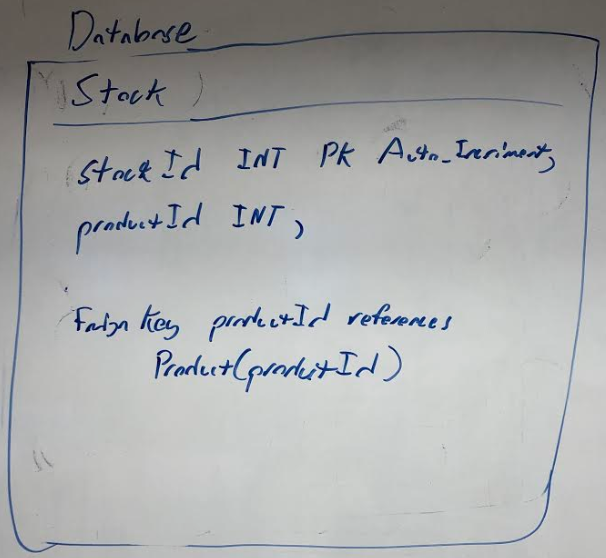 Database
Stock
StockId INT PK Auto_Incriment,
productId INT,
Foreign Key productId references
Product(productId)